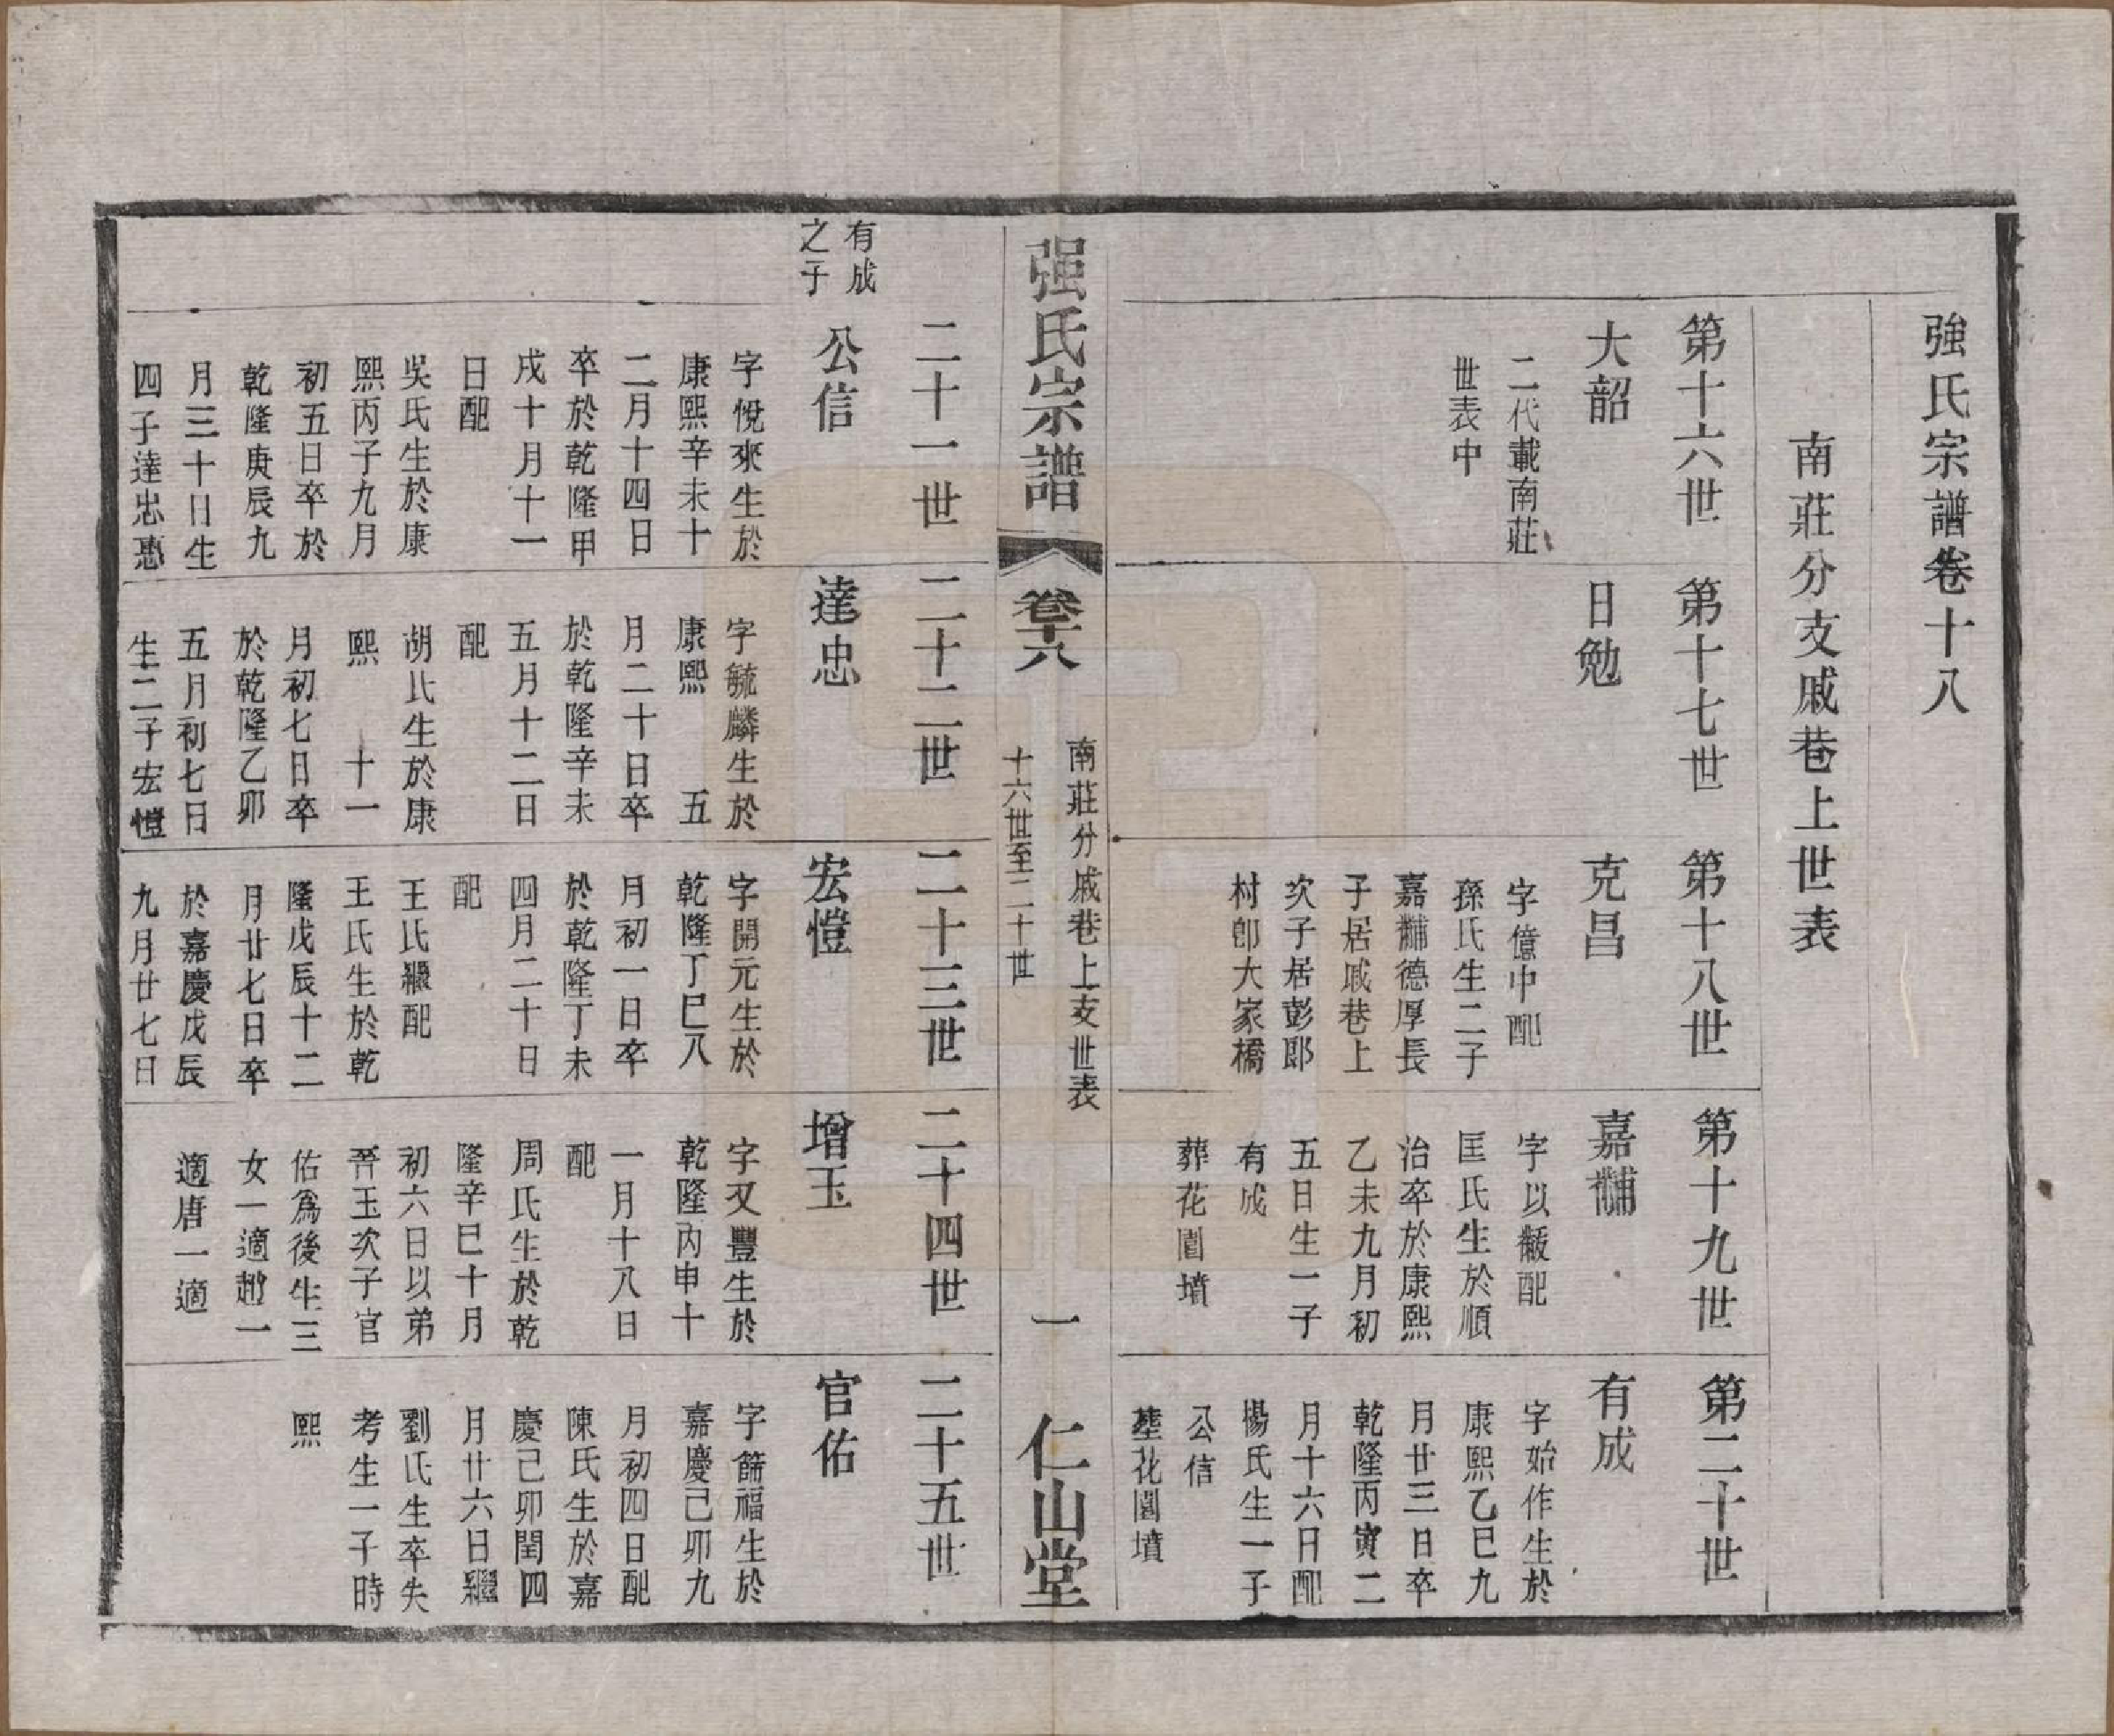 強氏宗譜卷十八
南莊分支戚巷上世表
第十六世
大韶
二代載南莊
世表中
第十七世
日勉
第十八世
克昌
字億中配
孫氏生二子
嘉黼德厚長
子居戚巷上
次子居彭郎
村卽大家橋
第十九世
嘉黼
字以黻配
匡氏生於順
治卒於康熙
乙未九月初
五日生一子
有成
葬花園墳
第二十世
有成
字始作生於
康熙乙巳九
月廿三日卒
乾隆丙寅二
月十六日配
楊氏生一子
公信
塟花園墳
强氏宗譜
卷十八
南莊分戚巷上支世表
十六世至二十世
一
仁山堂
有成
之子
二十一世
公信
字悅來生於
康熙辛未十
二月十四日
卒於乾隆甲
戌十月十一
日配
吳氏生於康
熙丙子九月
初五日卒於
乾隆庚辰九
月三十日生
四子達忠憑
二十二世
達忠
字毓麟生於
康熙　　五
月二十日卒
於乾隆辛未
五月十二日
配
胡氏生於康
熙　　十一
月初七日卒
於乾隆乙卯
五月初七日
生二子宏愷
二十三世
宏愷
字開元生於
乾隆丁巳八
月初一日卒
於乾隆丁未
四月二十日
配
王氏繼配
王氏生於乾
隆戊辰十二
月廿七日卒
於嘉慶戊辰
九月廿七日
二十四世
增玉
字又豐生於
乾隆丙申十
一月十八日
配
周氏生於乾
隆辛巳十月
初六日以弟
晉玉次子官
佑爲後生三
女一適趙一
適唐一適
二十五世
官佑
字籂福生於
嘉慶己卯九
月初四日配
陳氏生於嘉
慶己卯閏四
月廿六日繼
劉氏生卒失
考生一子時
熙